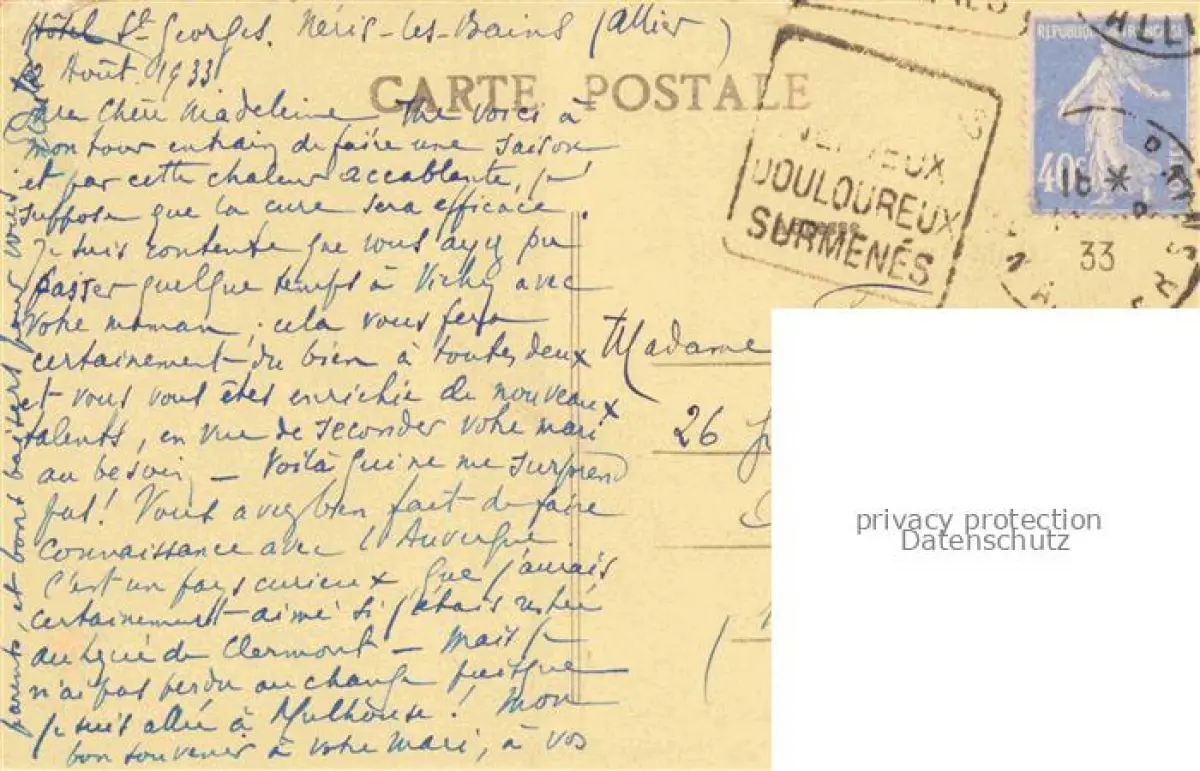 Hôtel St Georges. Néris-les-Bains (Allier)
Août 1933
CARTE POSTALE
Ma Chère Madeleine Me voici à
mon tour entrain de faire une saison
et par cette chaleur accablante, je
suppose que la cure sera efficace.
Je suis contente que vous ayez pu
passer quelque temps à Vichy avec
votre maman, cela vous fera
certainement du bien à toutes deux
et vous vous êtes enrichie de nouveaux
talents, en vue de seconder votre mari
au besoin – Voilà qui ne me surprend
pas! Vous avez bien fait de faire
connaissance avec l'Auvergne.
C'est un pays curieux que j'aurais
certainement aimé si j'étais restée
au lycée de Clermont – Mais je
n'ai pas perdu au change puisque
je suis allée à Mulhouse! Mon
bon souvenir à votre mari, à vos
parents, et bons baisers pour vous
YEUX
DOULOUREUX
SURMENÉS
REPUBLIQUE FRANÇAISE
40c
ALLI
18 *
33
Madame
26
privacy protection
Datenschutz